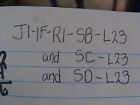 J1-1F-R1-SB-L23
and SC-L23
and SD-L23